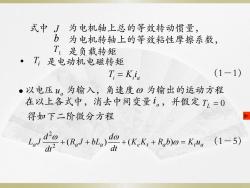 式中 J 为电机轴上总的等效转动惯量，
b 为电机转轴上的等效粘性摩擦系数，
T_l 是负载转矩
• T_i 是电动机电磁转矩
T_i = K_i i_a (1-1)
• 以电压 u_a 为输入，角速度 ω 为输出的运动方程
在以上各式中，消去中间变量 i_a ，并假定 T_L = 0
得如下二阶微分方程
L_a J d²ω/dt² + (R_a J + bL_a) dω/dt + (K_e K_t + R_a b)ω = K_t u_a (1-5)